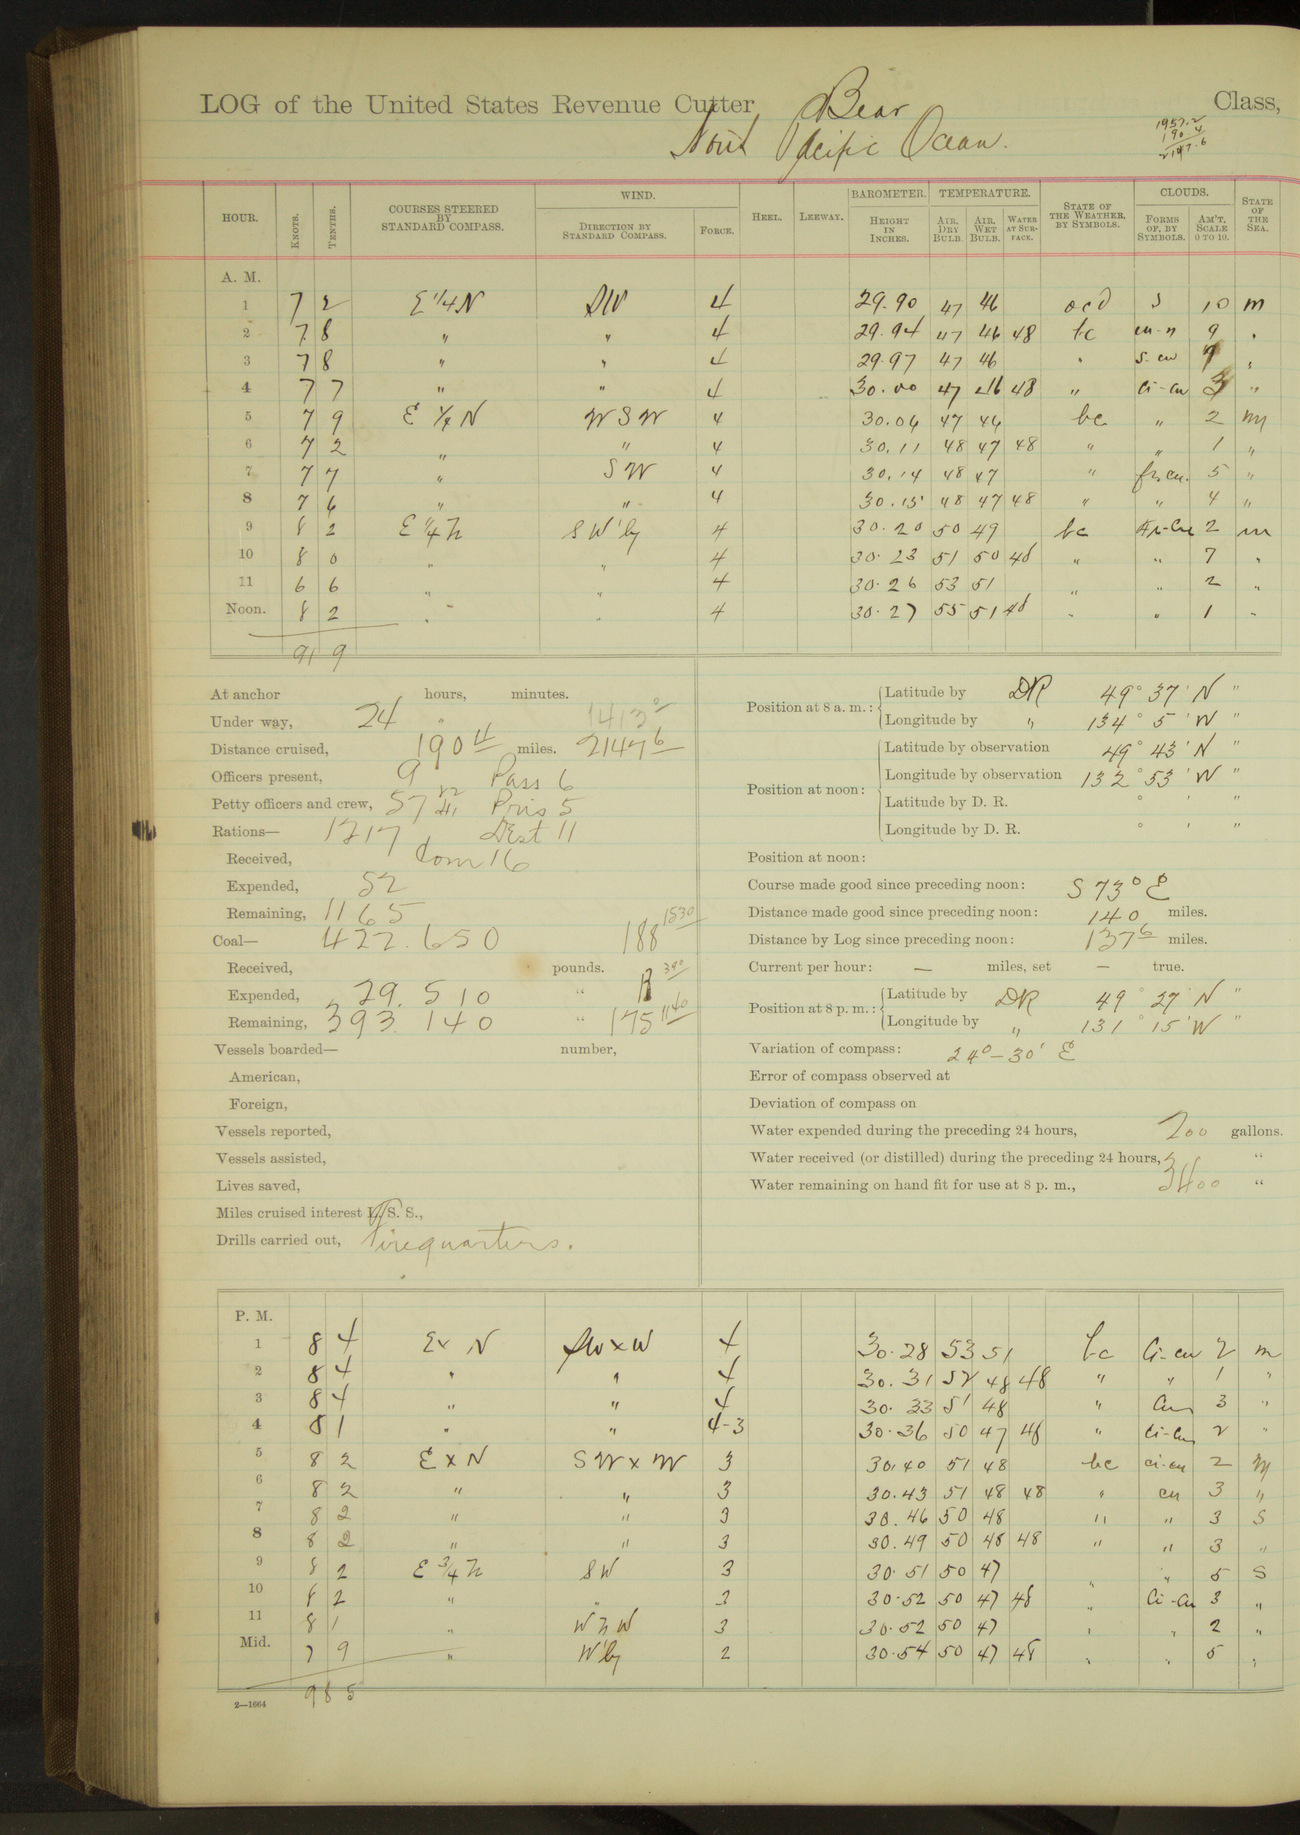 LOG of the United States Revenue Cutter Bear Class,
North Pacific Ocean.
1957.2
190.4
2147.6
HOUR. KNOTS. TENTHS. COURSES STEERED BY STANDARD COMPASS. WIND. DIRECTION BY STANDARD COMPASS. FORCE. HEEL. LEEWAY. BAROMETER. HEIGHT IN INCHES. TEMPERATURE. AIR, DRY BULB. AIR, WET BULB. WATER AT SURFACE. STATE OF THE WEATHER, BY SYMBOLS. CLOUDS. FORMS OF, BY SYMBOLS. AM'T. SCALE 0 TO 10. STATE OF THE SEA.
A. M.
1 7 2 E 1/4 N SW 4 29.90 47 46 ocd S 10 m
2 7 8 " " 4 29.94 47 46 48 bc cu-n 9 "
3 7 8 " " 4 29.97 47 46 " s. cu 7 "
4 7 7 " " 4 30.00 47 46 48 " ci-cu 3 "
5 7 9 E 1/4 N WSW 4 30.04 47 46 bc " 2 m
6 7 2 " " 4 30.11 48 47 48 " " 1 "
7 7 7 " SW 4 30.14 48 47 " fr. cu. 5 "
8 7 6 " " 4 30.15 48 47 48 " " 4 "
9 8 2 E 1/4 N SW'ly 4 30.20 50 49 bc 2 m
10 8 0 " " 4 30.23 51 50 48 " " 7 "
11 6 6 " " 4 30.26 53 51 " " 2 "
Noon. 8 2 " " 4 30.27 55 51 48 " " 1 "
91 9
At anchor hours, minutes.
Under way, 24 "
Distance cruised, 190 4 miles. 2147 6
Officers present, 9 Pass 6
Petty officers and crew, 57 Pris 5
Rations— 1217 Dest 11
Received, Com 16
Expended, 52
Remaining, 1165
Coal— 422.650 188 1530
Received, pounds.
Expended, 29.510 " 390
Remaining, 393.140 " 175 1140
Vessels boarded— number,
American,
Foreign,
Vessels reported,
Vessels assisted,
Lives saved,
Miles cruised interest L. S. S.,
Drills carried out, Firequarters.
Position at 8 a. m.: Latitude by DR 49° 37' N "
Longitude by " 134° 5' W "
Position at noon: Latitude by observation 49° 43' N "
Longitude by observation 132° 53' W "
Latitude by D. R. ° ' "
Longitude by D. R. ° ' "
Position at noon:
Course made good since preceding noon: S 73° E
Distance made good since preceding noon: 140 miles.
Distance by Log since preceding noon: 137 6 miles.
Current per hour: — miles, set — true.
Position at 8 p. m.: Latitude by DR 49° 27' N "
Longitude by " 131° 15' W "
Variation of compass: 24°-30' E
Error of compass observed at
Deviation of compass on
Water expended during the preceding 24 hours, 200 gallons.
Water received (or distilled) during the preceding 24 hours, "
Water remaining on hand fit for use at 8 p. m., 3400 "
P. M.
1 8 4 E x N SW x W 4 30.28 53 51 bc Ci-cu 2 m
2 8 4 " " 4 30.31 52 48 48 " " 1 "
3 8 4 " " 4 30.33 51 48 " Cu 3 "
4 8 1 " " 4-3 30.36 50 47 48 " Ci-Cu 2 "
5 8 2 E x N SW x W 3 30.40 51 48 bc ci-cu 2 m
6 8 2 " " 3 30.43 51 48 48 " cu 3 "
7 8 2 " " 3 30.46 50 48 " " 3 S
8 8 2 " " 3 30.49 50 48 48 " " 3 "
9 8 2 E 3/4 N SW 3 30.51 50 47 " " 5 S
10 8 2 " " 3 30.52 50 47 48 " Ci-Cu 3 "
11 8 1 " WNW 3 30.52 50 47 " " 2 "
Mid. 7 9 " W'ly 2 30.54 50 47 48 " " 5 "
98 5
2—1664